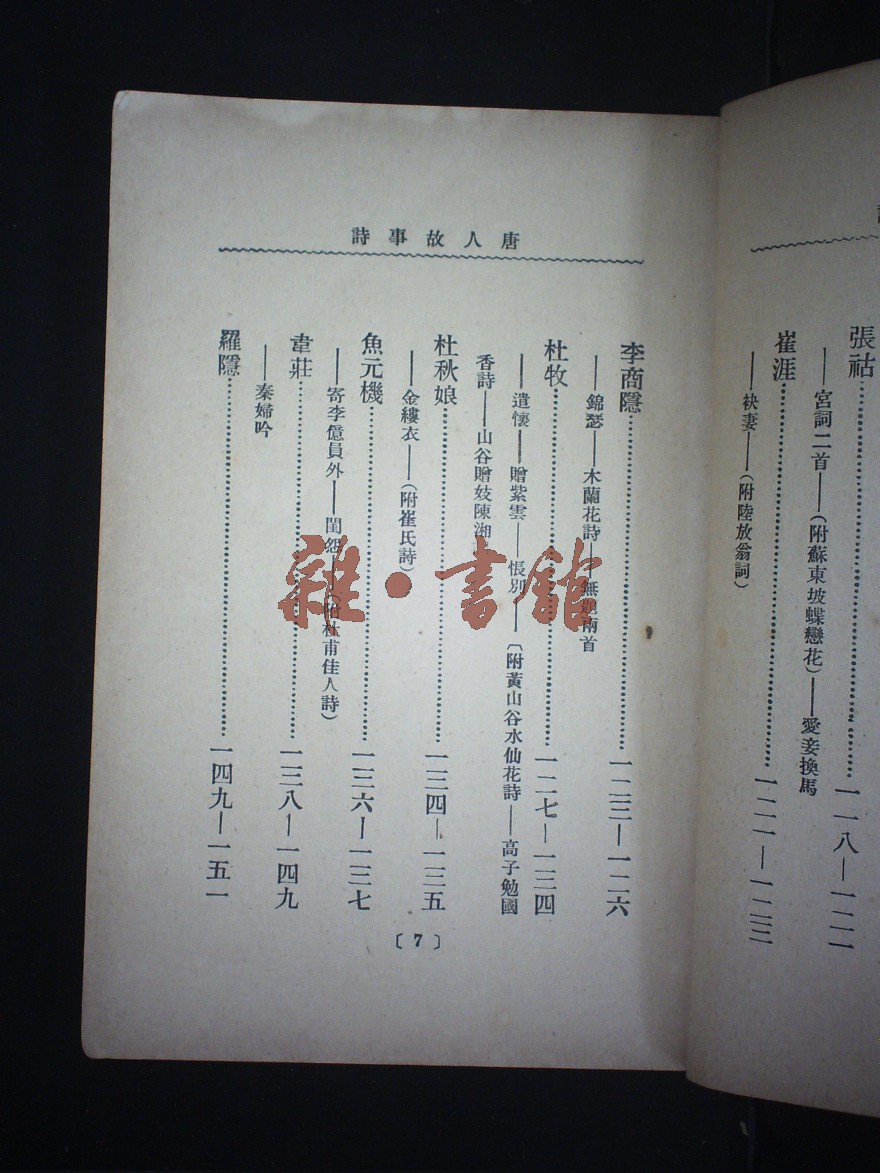 張祜……一一八—一二一
——宮詞二首——(附蘇東坡蝶戀花)——愛妾換馬
崔涯……一二一—一二三
——袂妻——(附陸放翁詞)
唐人故事詩
李商隱……一二三—一二六
——錦瑟——木蘭花詩——無題兩首
杜牧……一二七—一三四
——遣懷——贈紫雲——悵別——〔附黃山谷水仙花詩——高子勉國
香詩——山谷贈妓陳湘
杜秋娘……一三四—一三五
——金縷衣——(附崔氏詩)
魚元機……一三六—一三七
——寄李億員外——閨怨——(附杜甫佳人詩)
韋莊……一三八—一四九
——秦婦吟
羅隱……一四九—一五一
〔7〕
雜·書館